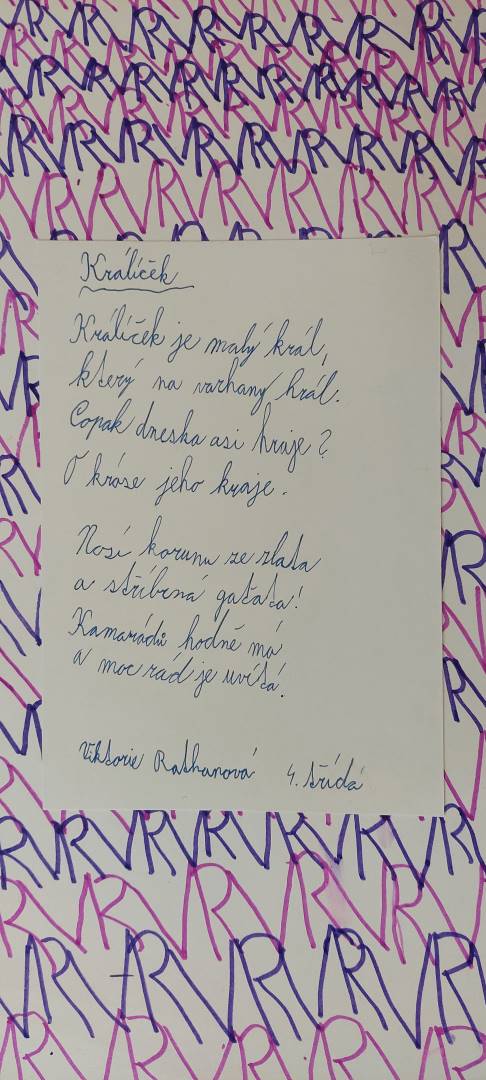 Králíček
Králíček je malý král,
který na varhany hrál.
Copak dneska asi hraje?
O kráse jeho kraje.
Nosí korunu ze zlata
a stříbrná gaťata!
Kamarádů hodně má
a moc rád je uvítá.
Viktorie Rathanová 4. třída